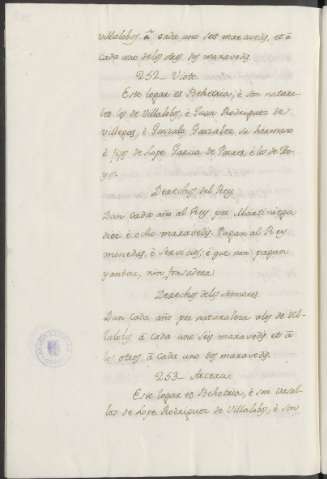 Villalobos, à cada uno seis maravedis, et à
cada uno de los otros dos maravedis.
252_ Viote.
Este logar es Behetria, è son natura-
les los de Villalobos, è Juan Rodriguez de
Villegas, è Gonzalo Gonzalez su hermano
è fijos de Lope Garcia de Porres, è los de Ro-
yo.
Derechos del Rey
Dan cada año al Rey por Martiniega
diez è ocho maravedis. Pagan al Rey
monedas, è servicios, è que non pagan
yantar, nin fonsadera.
Derechos de los Señores
Dan cada año por naturaleza a los de Vi-
llalobos à cada uno seis maravedis et à
los otros, à cada uno dos maravedis.
253_
Este logar es Behetria, è son vasa-
llos de Lope Rodriguez de Villalobos, è son